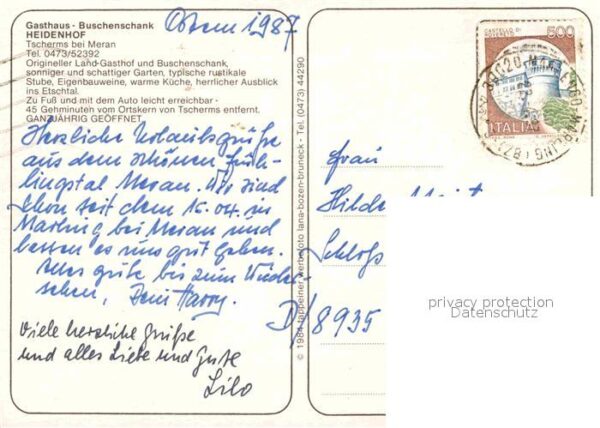 Ostern 1987
Gasthaus - Buschenschank
HEIDENHOF
Tscherms bei Meran
Tel. 0473/52392
Origineller Land-Gasthof und Buschenschank,
sonniger und schattiger Garten, typische rustikale
Stube, Eigenbauweine, warme Küche, herrlicher Ausblick
ins Etschtal.
Zu Fuß und mit dem Auto leicht erreichbar -
45 Gehminuten vom Ortskern von Tscherms entfernt.
GANZJÄHRIG GEÖFFNET
Herzliche Urlaubsgrüße
aus dem schönen Früh-
lingstal Meran. Wir sind
schon seit dem 16.04. in
Marling bei Meran und
lassen es uns gut gehen.
Alles gute bis zum Wieder-
sehen, Harry.
Viele herzliche Grüße
und alles Liebe und Gute
Lilo
© 1984 tappeiner werbefoto lana-bozen-bruneck - Tel. (0473) 44290
CASTELLO DI
ROVERETO
500
ITALIA
Frau
Schloß
D/8935
privacy protection
Datenschutz